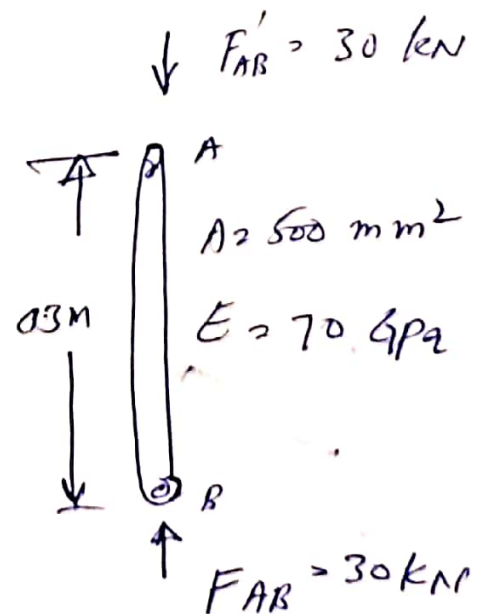 F'AB = 30 kN
A
A = 500 mm²
0.3M
E = 70 GPa
B
FAB = 30 kN